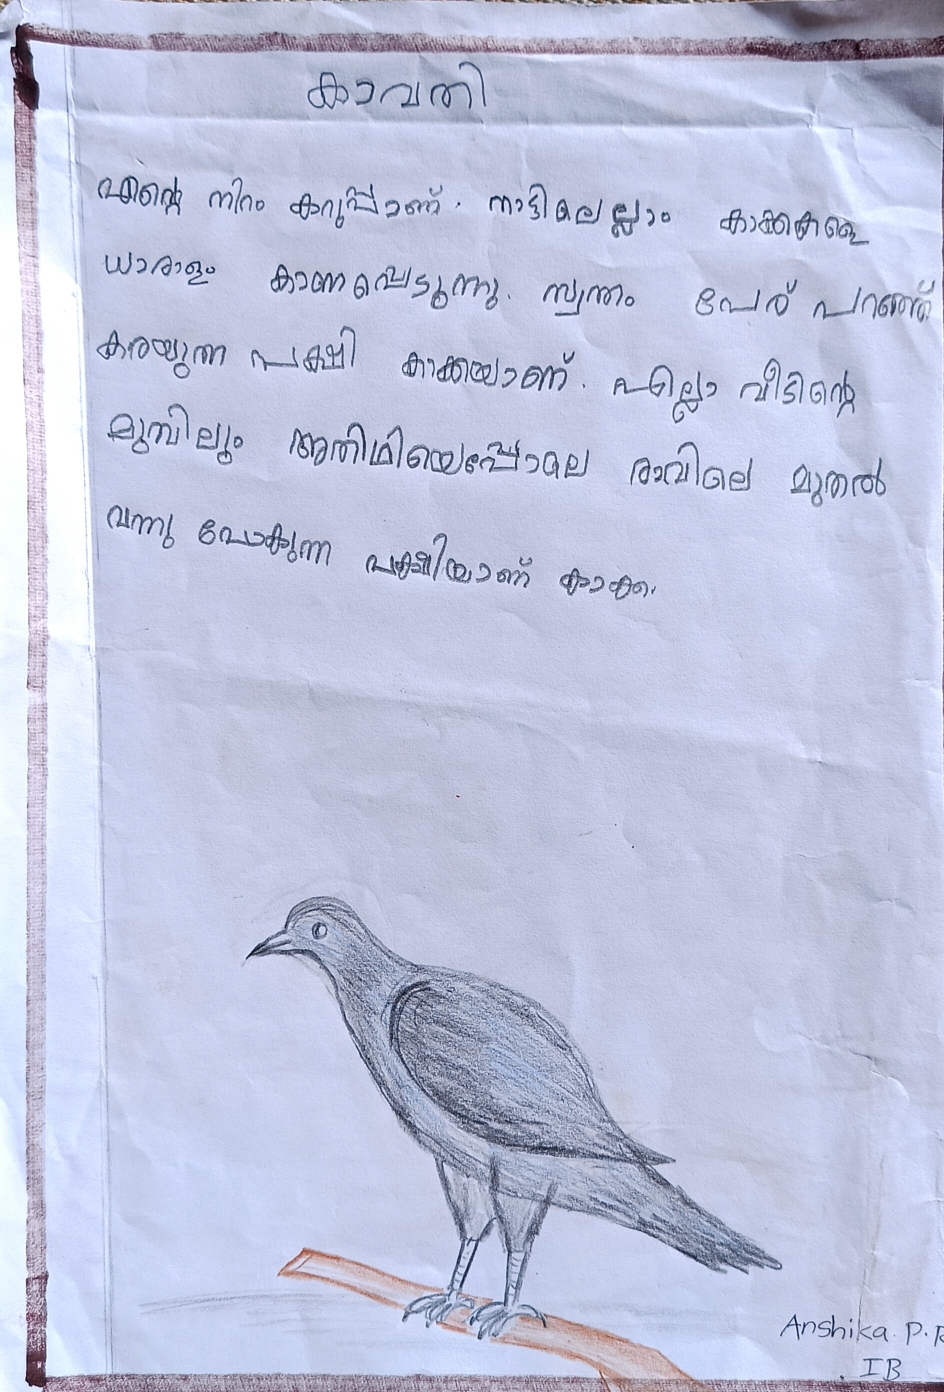 കാവതി
എന്റെ നിറം കറുപ്പാണ്. നാട്ടിലെല്ലാം കാക്കകളെ
ധാരാളം കാണപ്പെടുന്നു. സ്വന്തം പേര് പറഞ്ഞ്
കരയുന്ന പക്ഷി കാക്കയാണ്. എല്ലാ വീടിന്റെ
മുമ്പിലും അതിഥിയെപ്പോലെ രാവിലെ മുതൽ
വന്നു പോകുന്ന പക്ഷിയാണ് കാക്ക.
Anshika. P. R
IB